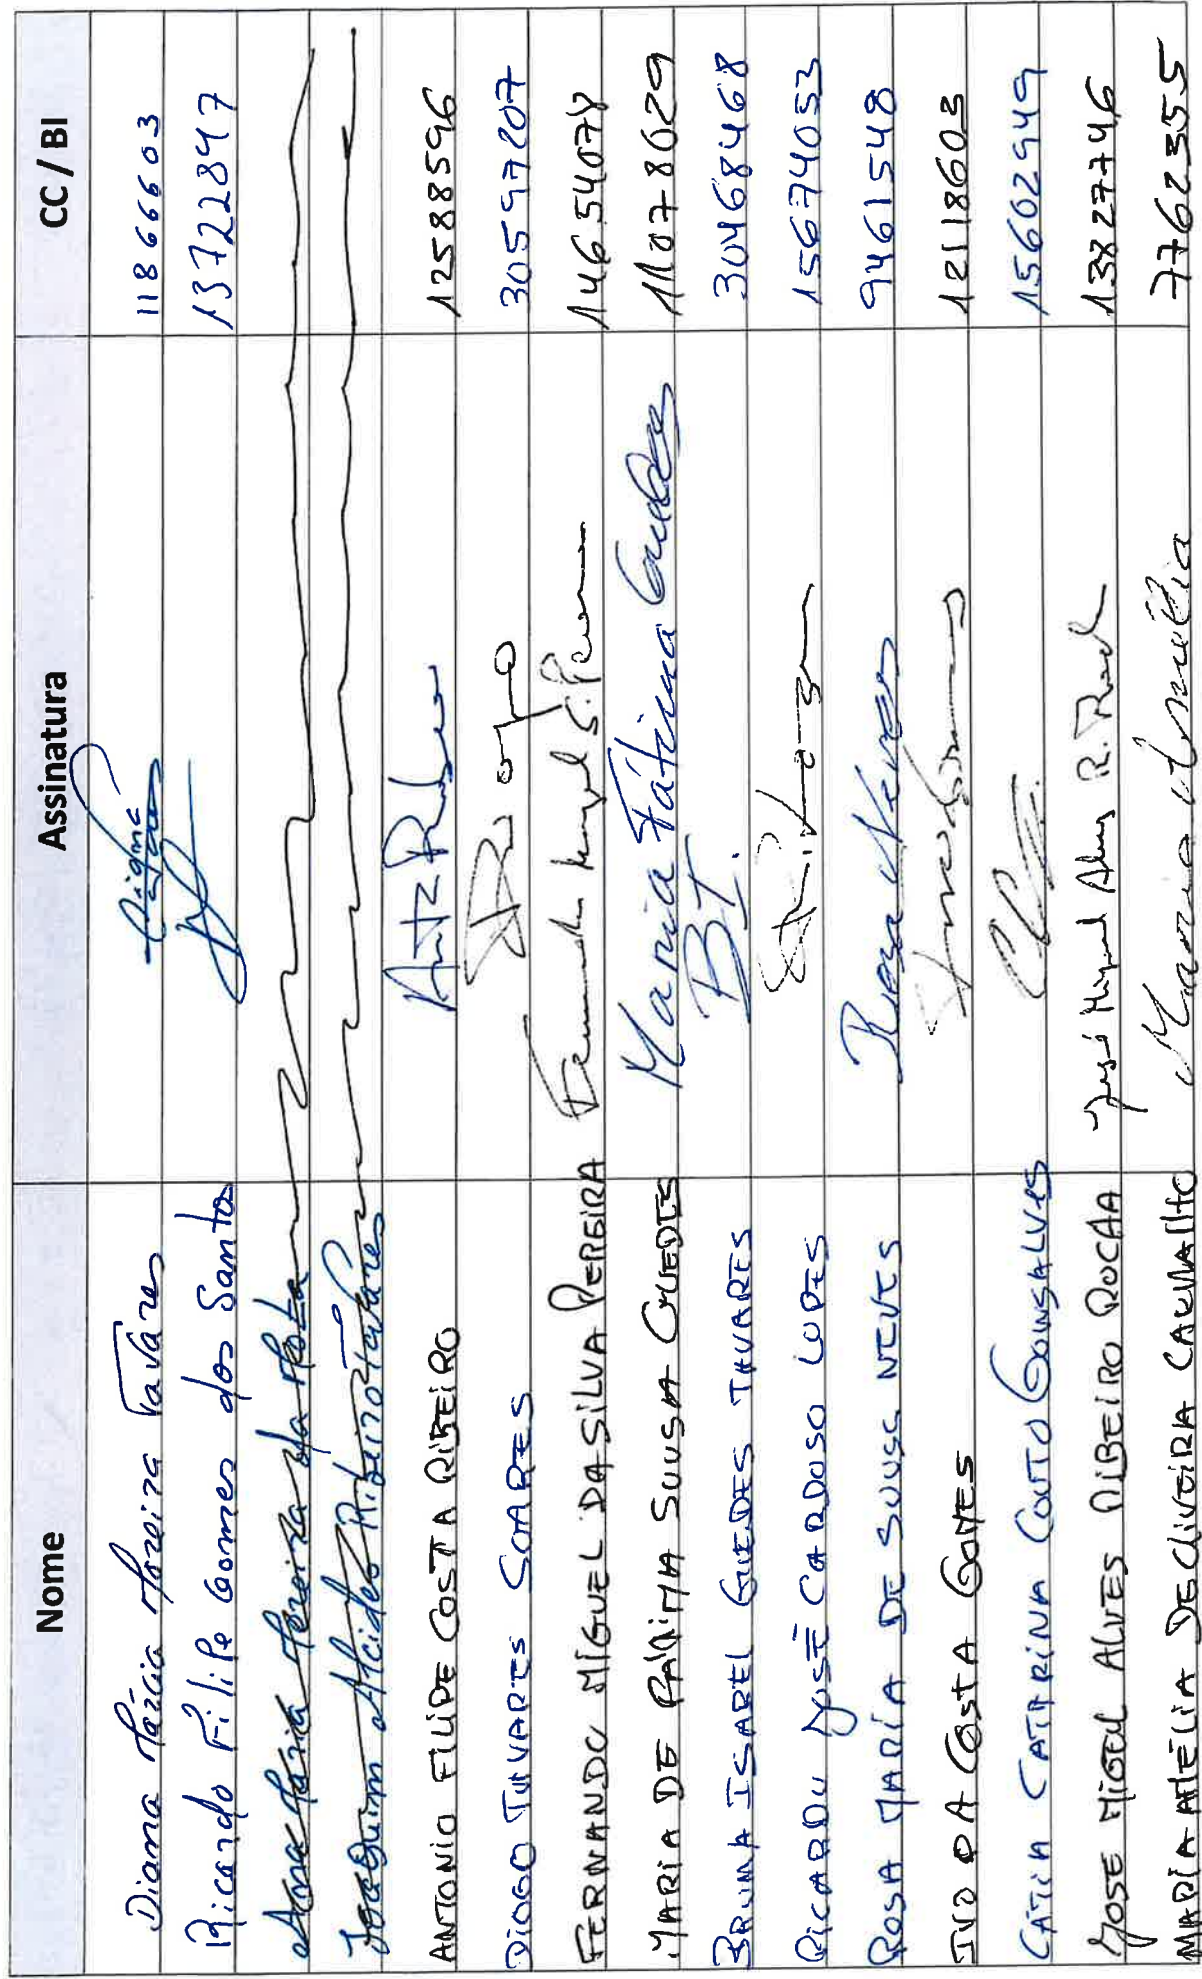 Nome Assinatura CC / BI
Diana Márcia Moreira Tavares 11866603
Ricardo Filipe Gomes dos Santos 13722897
Ana Maria Moreira da Mota
Joaquim Alcides Ribeiro Tavares
ANTONIO FILIPE COSTA RIBEIRO 12588596
DIOGO TAVARES SOARES Diogo 30597207
FERNANDO MIGUEL DA SILVA PEREIRA 14654078
MARIA DE FATIMA SOUSA GUEDES Maria Fátima Guedes 11078629
BRUNA ISABEL GUEDES TAVARES BT. 30468468
RICARDO JOSÉ CARDOSO LOPES 15674053
ROSA MARIA DE SOUSA NEVES Rosa Neves 9461548
IVO DA COSTA GOMES 12118603
CATIA CATARINA COUTO GONSALVES 15602949
JOSE MIGUEL ALVES RIBEIRO ROCHA José Miguel Alves R. Rocha 13827746
MARIA AMÉLIA DE OLIVEIRA CARVALHO Maria Amélia 7762355